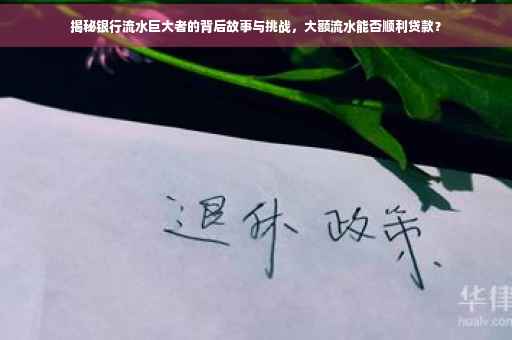 揭秘银行流水巨大者的背后故事与挑战，大额流水能否顺利贷款？
退休 政策
华律
hualv.com